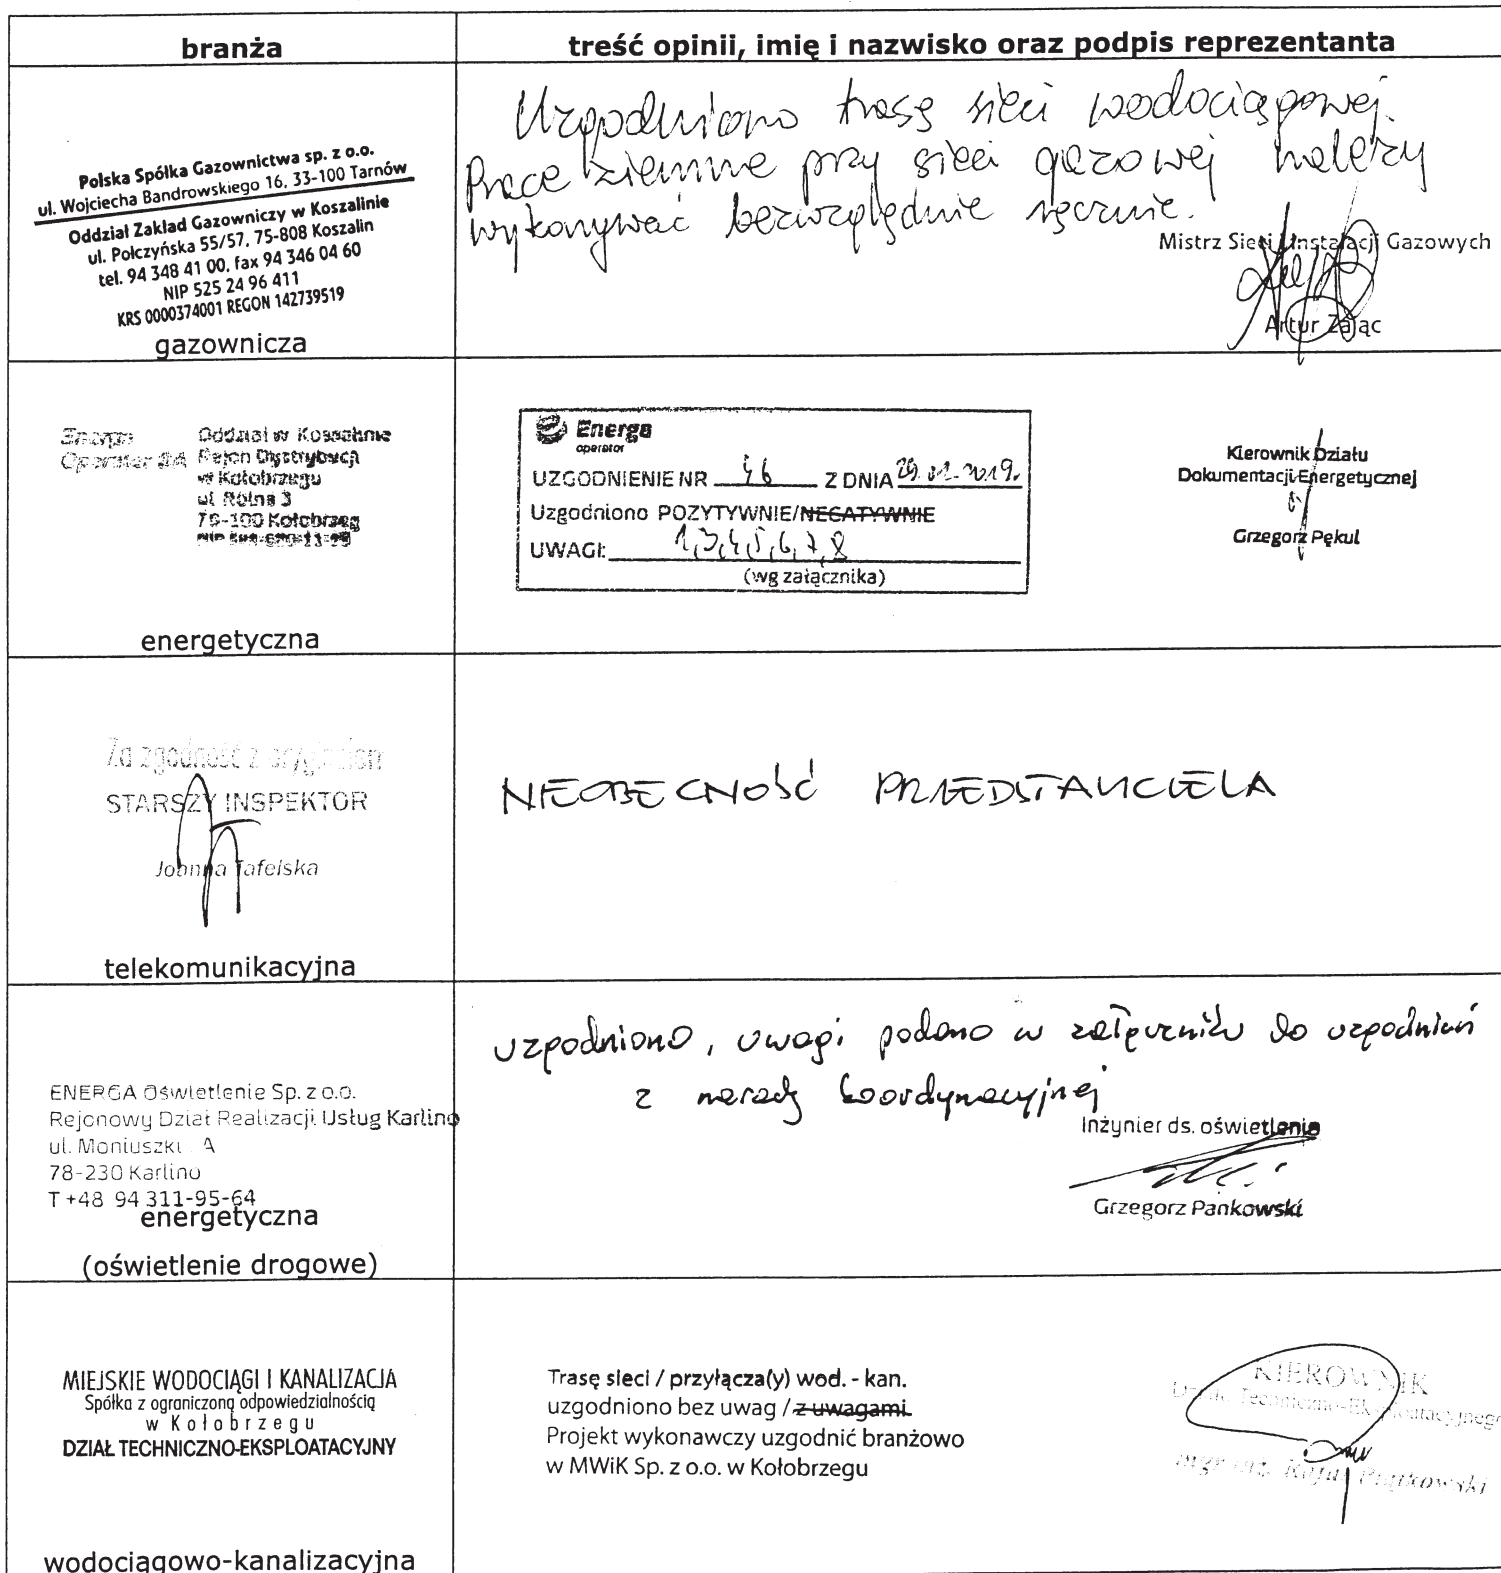 branża
treść opinii, imię i nazwisko oraz podpis reprezentanta
Polska Spółka Gazownictwa sp. z o.o.
ul. Wojciecha Bandrowskiego 16, 33-100 Tarnów
Oddział Zakład Gazowniczy w Koszalinie
ul. Połczyńska 55/57, 75-808 Koszalin
tel. 94 348 41 00, fax 94 346 04 60
NIP 525 24 96 411
KRS 0000374001 REGON 142739519
gazownicza
Uzgodniono trasę sieci wodociągowej.
Prace ziemne przy sieci gazowej należy
wykonywać bezwzględnie ręcznie.
Mistrz Sieci i Instalacji Gazowych
Artur Zając
Energa
Operator SA
Oddział w Koszalinie
Rejon Dystrybucji
w Kołobrzegu
ul. Rolna 3
78-100 Kołobrzeg
NIP
energetyczna
Energa
operator
UZGODNIENIE NR 46 Z DNIA 29.01.2019.
Uzgodniono POZYTYWNIE/NEGATYWNIE
UWAGI: 1,3,4,5,6,7,8
(wg załącznika)
Kierownik Działu
Dokumentacji Energetycznej
Grzegorz Pękul
Za zgodność z oryginałem
STARSZY INSPEKTOR
Joanna Tafelska
telekomunikacyjna
NIEOBECNOŚĆ PRZEDSTAWICIELA
ENERGA Oświetlenie Sp. z o.o.
Rejonowy Dział Realizacji Usług Karlino
ul. Moniuszki A
78-230 Karlino
T +48 94 311-95-64
energetyczna
(oświetlenie drogowe)
uzgodniono, uwagi podano w załączniku do uzgodnień
z narady koordynacyjnej
Inżynier ds. oświetlenia
Grzegorz Pankowski
MIEJSKIE WODOCIĄGI I KANALIZACJA
Spółka z ograniczoną odpowiedzialnością
w Kołobrzegu
DZIAŁ TECHNICZNO-EKSPLOATACYJNY
wodociągowo-kanalizacyjna
Trasę sieci / przyłącza(y) wod. - kan.
uzgodniono bez uwag / z uwagami
Projekt wykonawczy uzgodnić branżowo
w MWiK Sp. z o.o. w Kołobrzegu
KIEROWNIK
Działu Techniczno-Eksploatacyjnego
mgr inż. Rafał Piątkowski